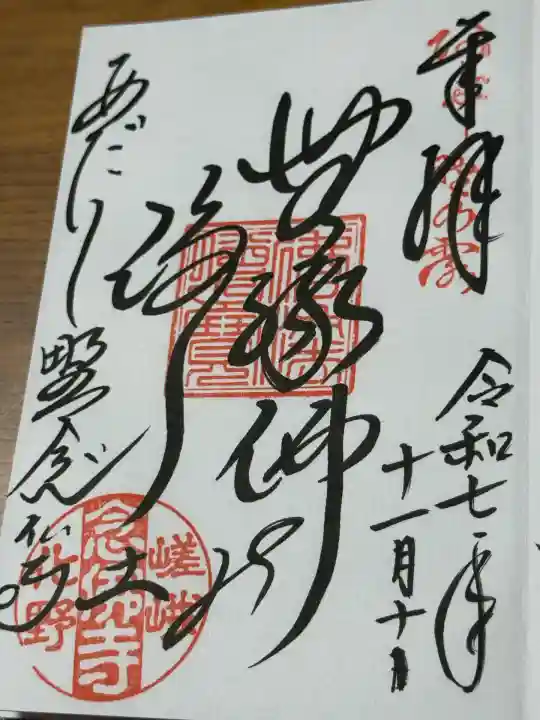 奉拝
令和七年
十一月十日
無縁仏の
土
あだし野念仏寺
佛法僧寶
嵯峨
念仏寺
化野